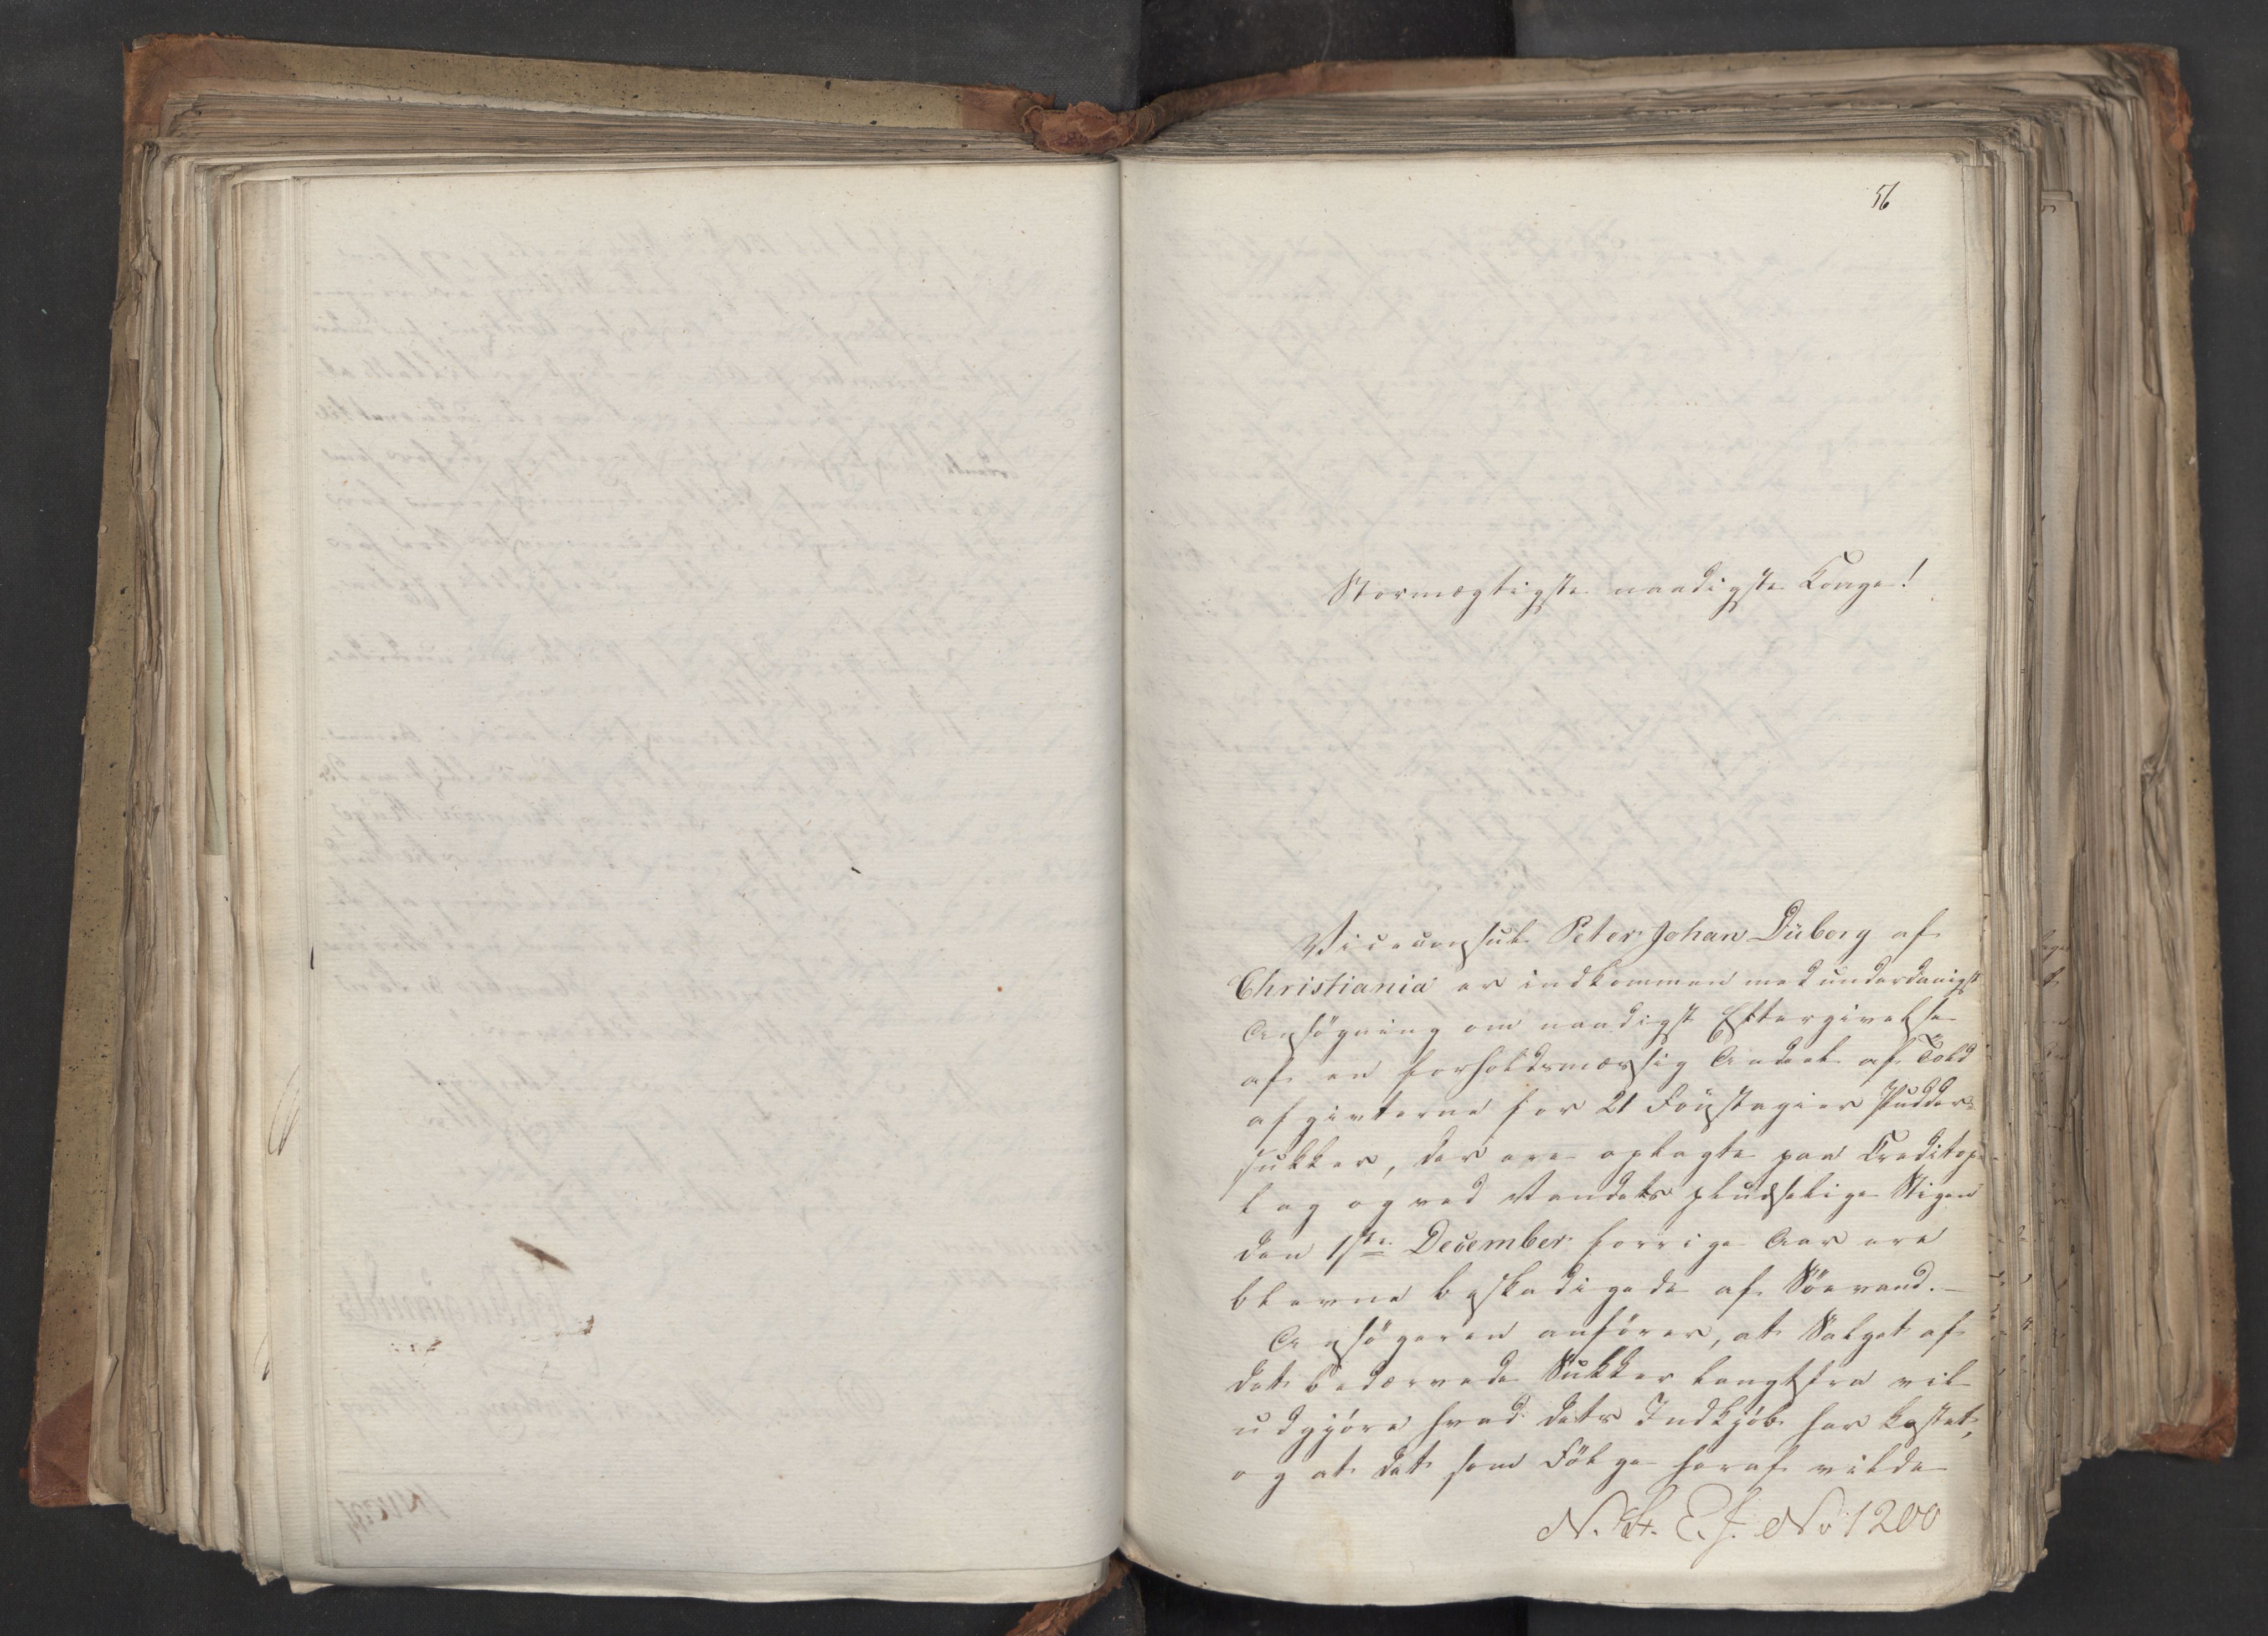 56
Stormægtigste naadigste Konge!
Viceconsul Peter Johan Düborg af
Christiania er indkommen med underdanigst
Ansögning om naadigst Eftergivelse
af en forholdsmæssig Andeel af Told
afgivterne for 21 Foustagier Pudder-
sukker, der ere oplagte paa Creditop-
lag og ved Vandets pludselige Stigen
den 1ste December forrige Aar ere
blevne beskadigede af Söevand.-
Ansögeren anförer, at Salget af
det bedærvede Sukker langtfra vil
udgjöre hvad dets Indkjöb har kostet,
og at det som Fölge heraf vilde
N. St. E. J. No 1200